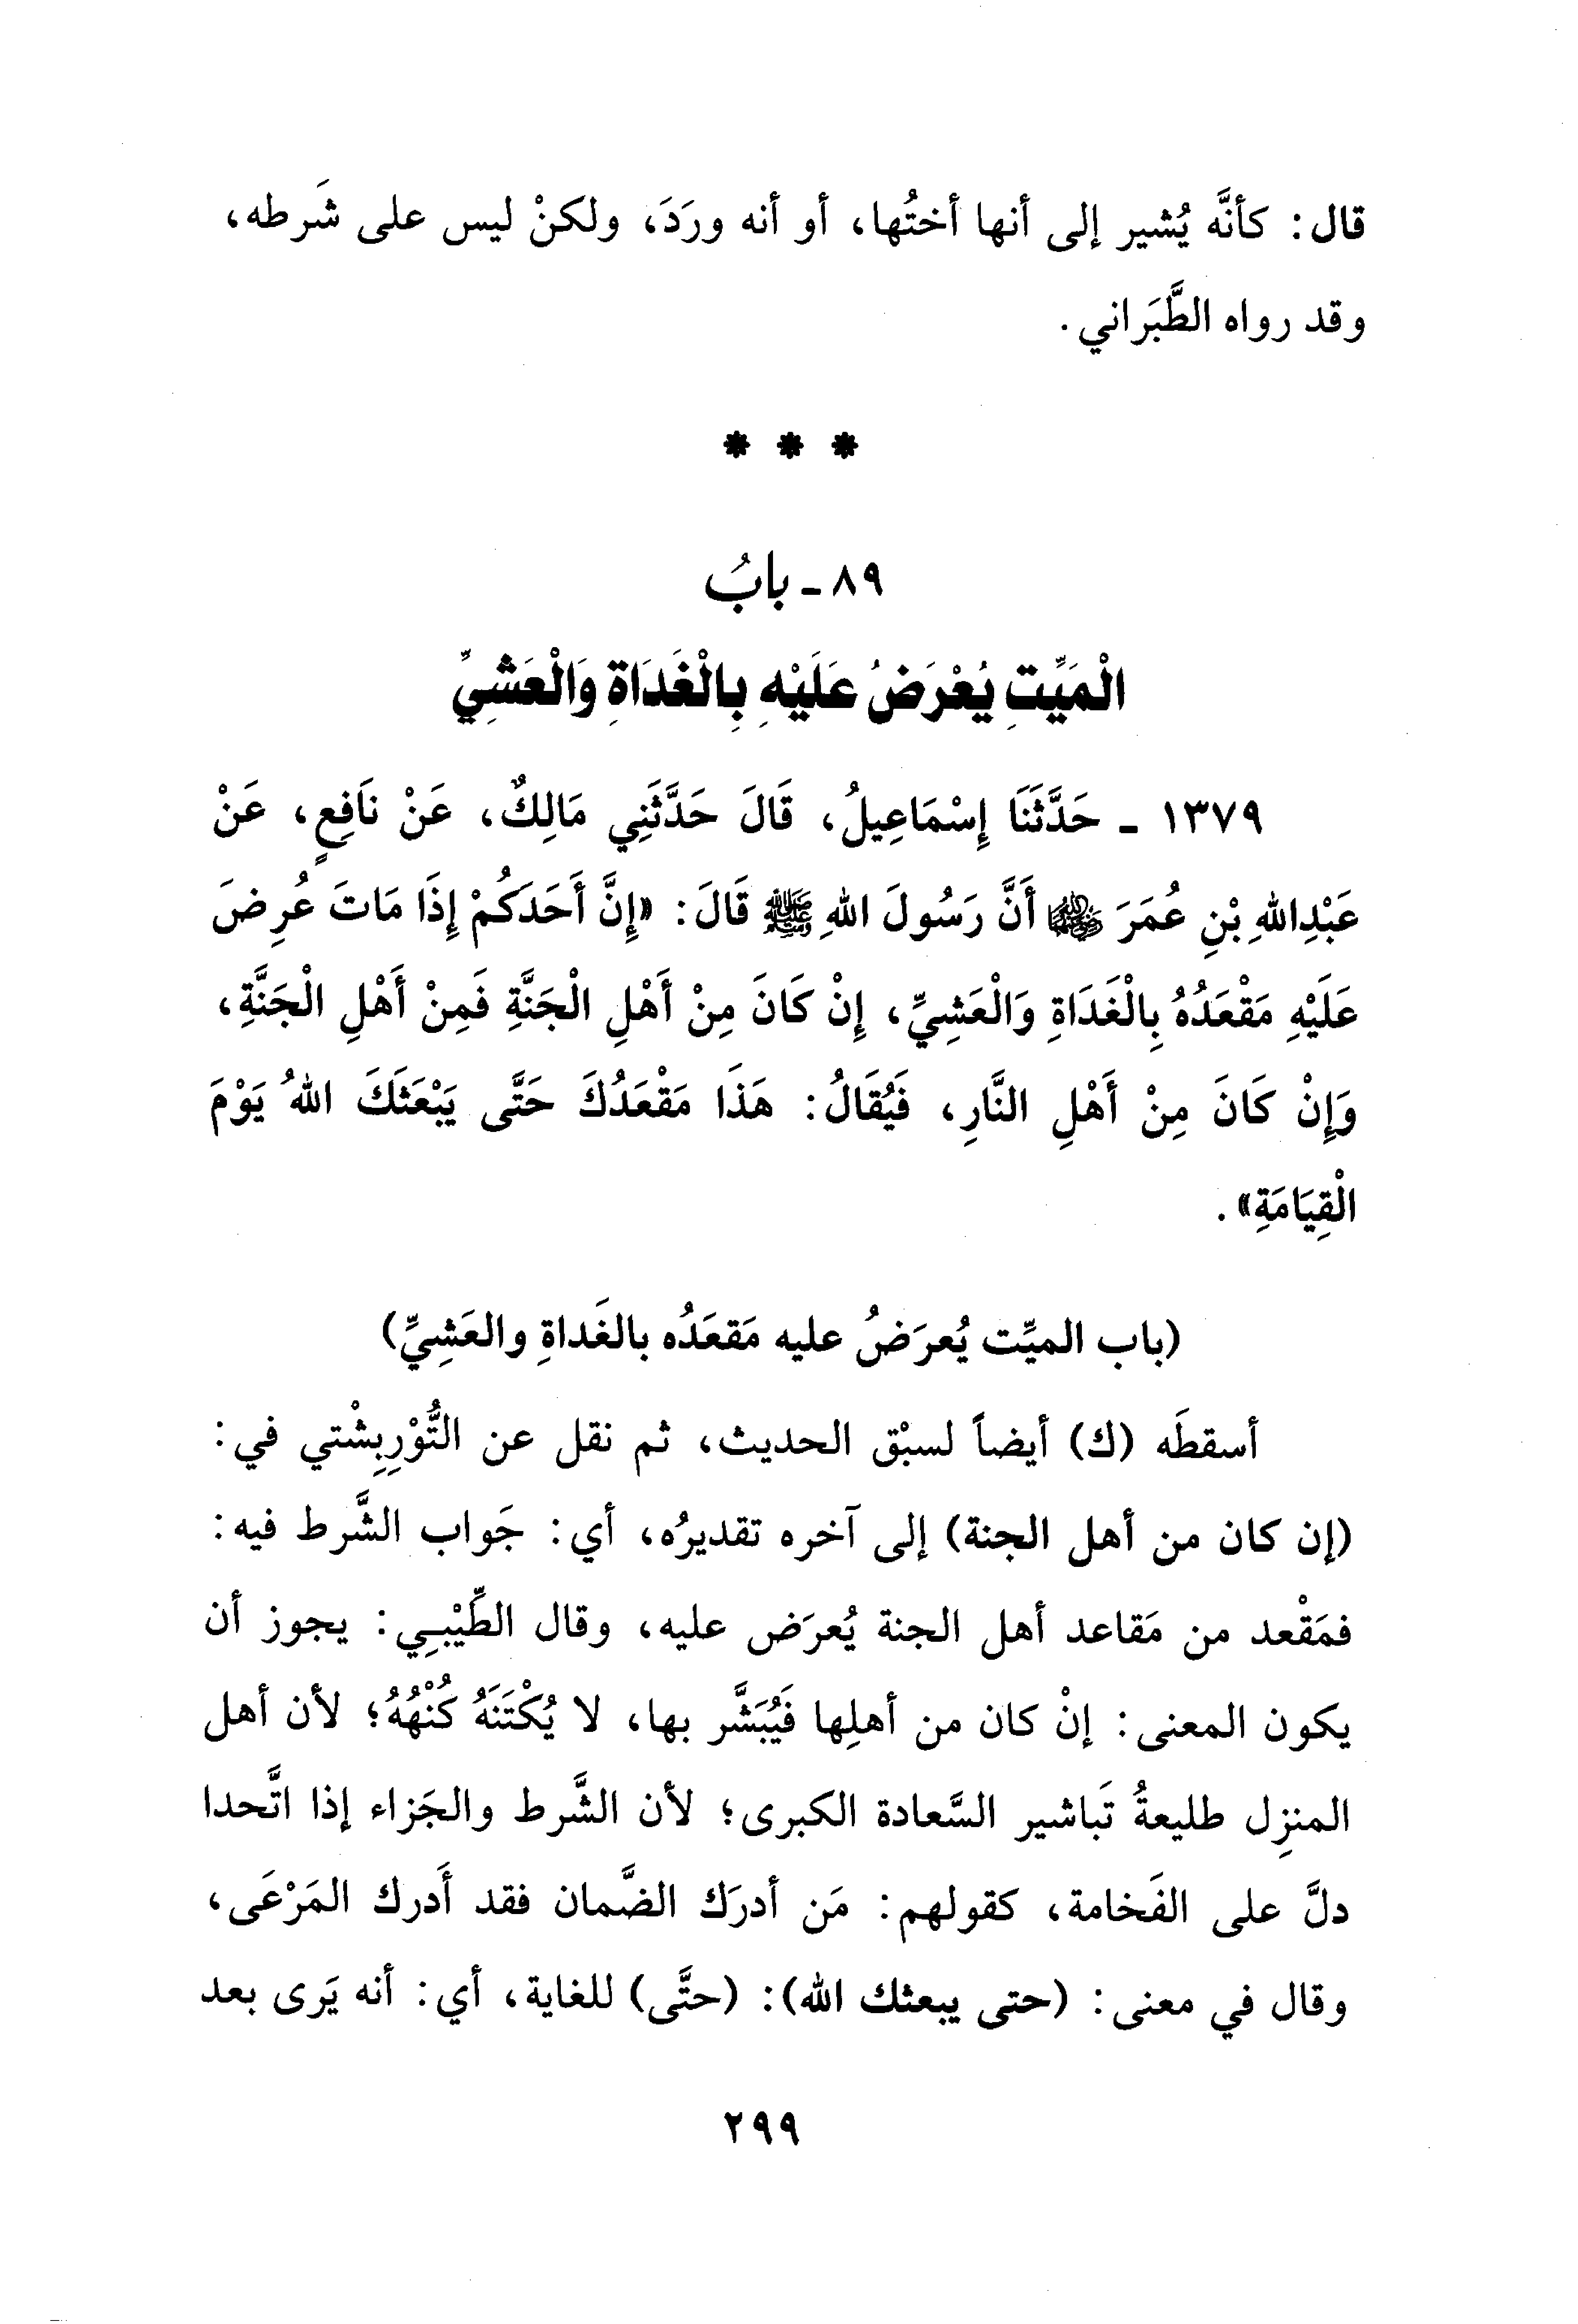 قال: كأنَّه يُشير إلى أنها أختُها، أو أنه ورَدَ، ولكنْ ليس على شَرطه،
وقد رواه الطَّبَراني.
* * *
٨٩ - بابُ
الْمَيِّتِ يُعْرَضُ عَلَيْهِ بِالْغَدَاةِ وَالْعَشِيِّ
١٣٧٩ - حَدَّثَنَا إِسْمَاعِيلُ، قَالَ حَدَّثَنِي مَالِكٌ، عَنْ نَافِعٍ، عَنْ
عَبْدِاللهِ بْنِ عُمَرَ ﵄ أَنَّ رَسُولَ اللهِ ﷺ قَالَ: «إِنَّ أَحَدَكُمْ إِذَا مَاتَ عُرِضَ
عَلَيْهِ مَقْعَدُهُ بِالْغَدَاةِ وَالْعَشِيِّ، إِنْ كَانَ مِنْ أَهْلِ الْجَنَّةِ فَمِنْ أَهْلِ الْجَنَّةِ،
وَإِنْ كَانَ مِنْ أَهْلِ النَّارِ، فَيُقَالُ: هَذَا مَقْعَدُكَ حَتَّى يَبْعَثَكَ اللهُ يَوْمَ
الْقِيَامَةِ».
(باب الميِّت يُعرَضُ عليه مَقعَدُه بالغَداةِ والعَشِيِّ)
أسقطَه (ك) أيضاً لسبْق الحديث، ثم نقل عن التُّوْرِبِشْتي في:
(إن كان من أهل الجنة) إلى آخره تقديرُه، أي: جَواب الشَّرط فيه:
فمَقْعد من مَقاعد أهل الجنة يُعرَض عليه، وقال الطِّيْبـي: يجوز أن
يكون المعنى: إنْ كان من أهلِها فَيُبَشَّر بها، لا يُكْتَنَهُ كُنْهُهُ؛ لأن أهل
المنزِل طليعةُ تَباشير السَّعادة الكبرى؛ لأن الشَّرط والجَزاء إذا اتَّحدا
دلَّ على الفَخامة، كقولهم: مَن أدرَك الضَّمان فقد أَدرك المَرْعَى،
وقال في معنى: (حتى يبعثك الله): (حتَّى) للغاية، أي: أنه يَرى بعد
٢٩٩